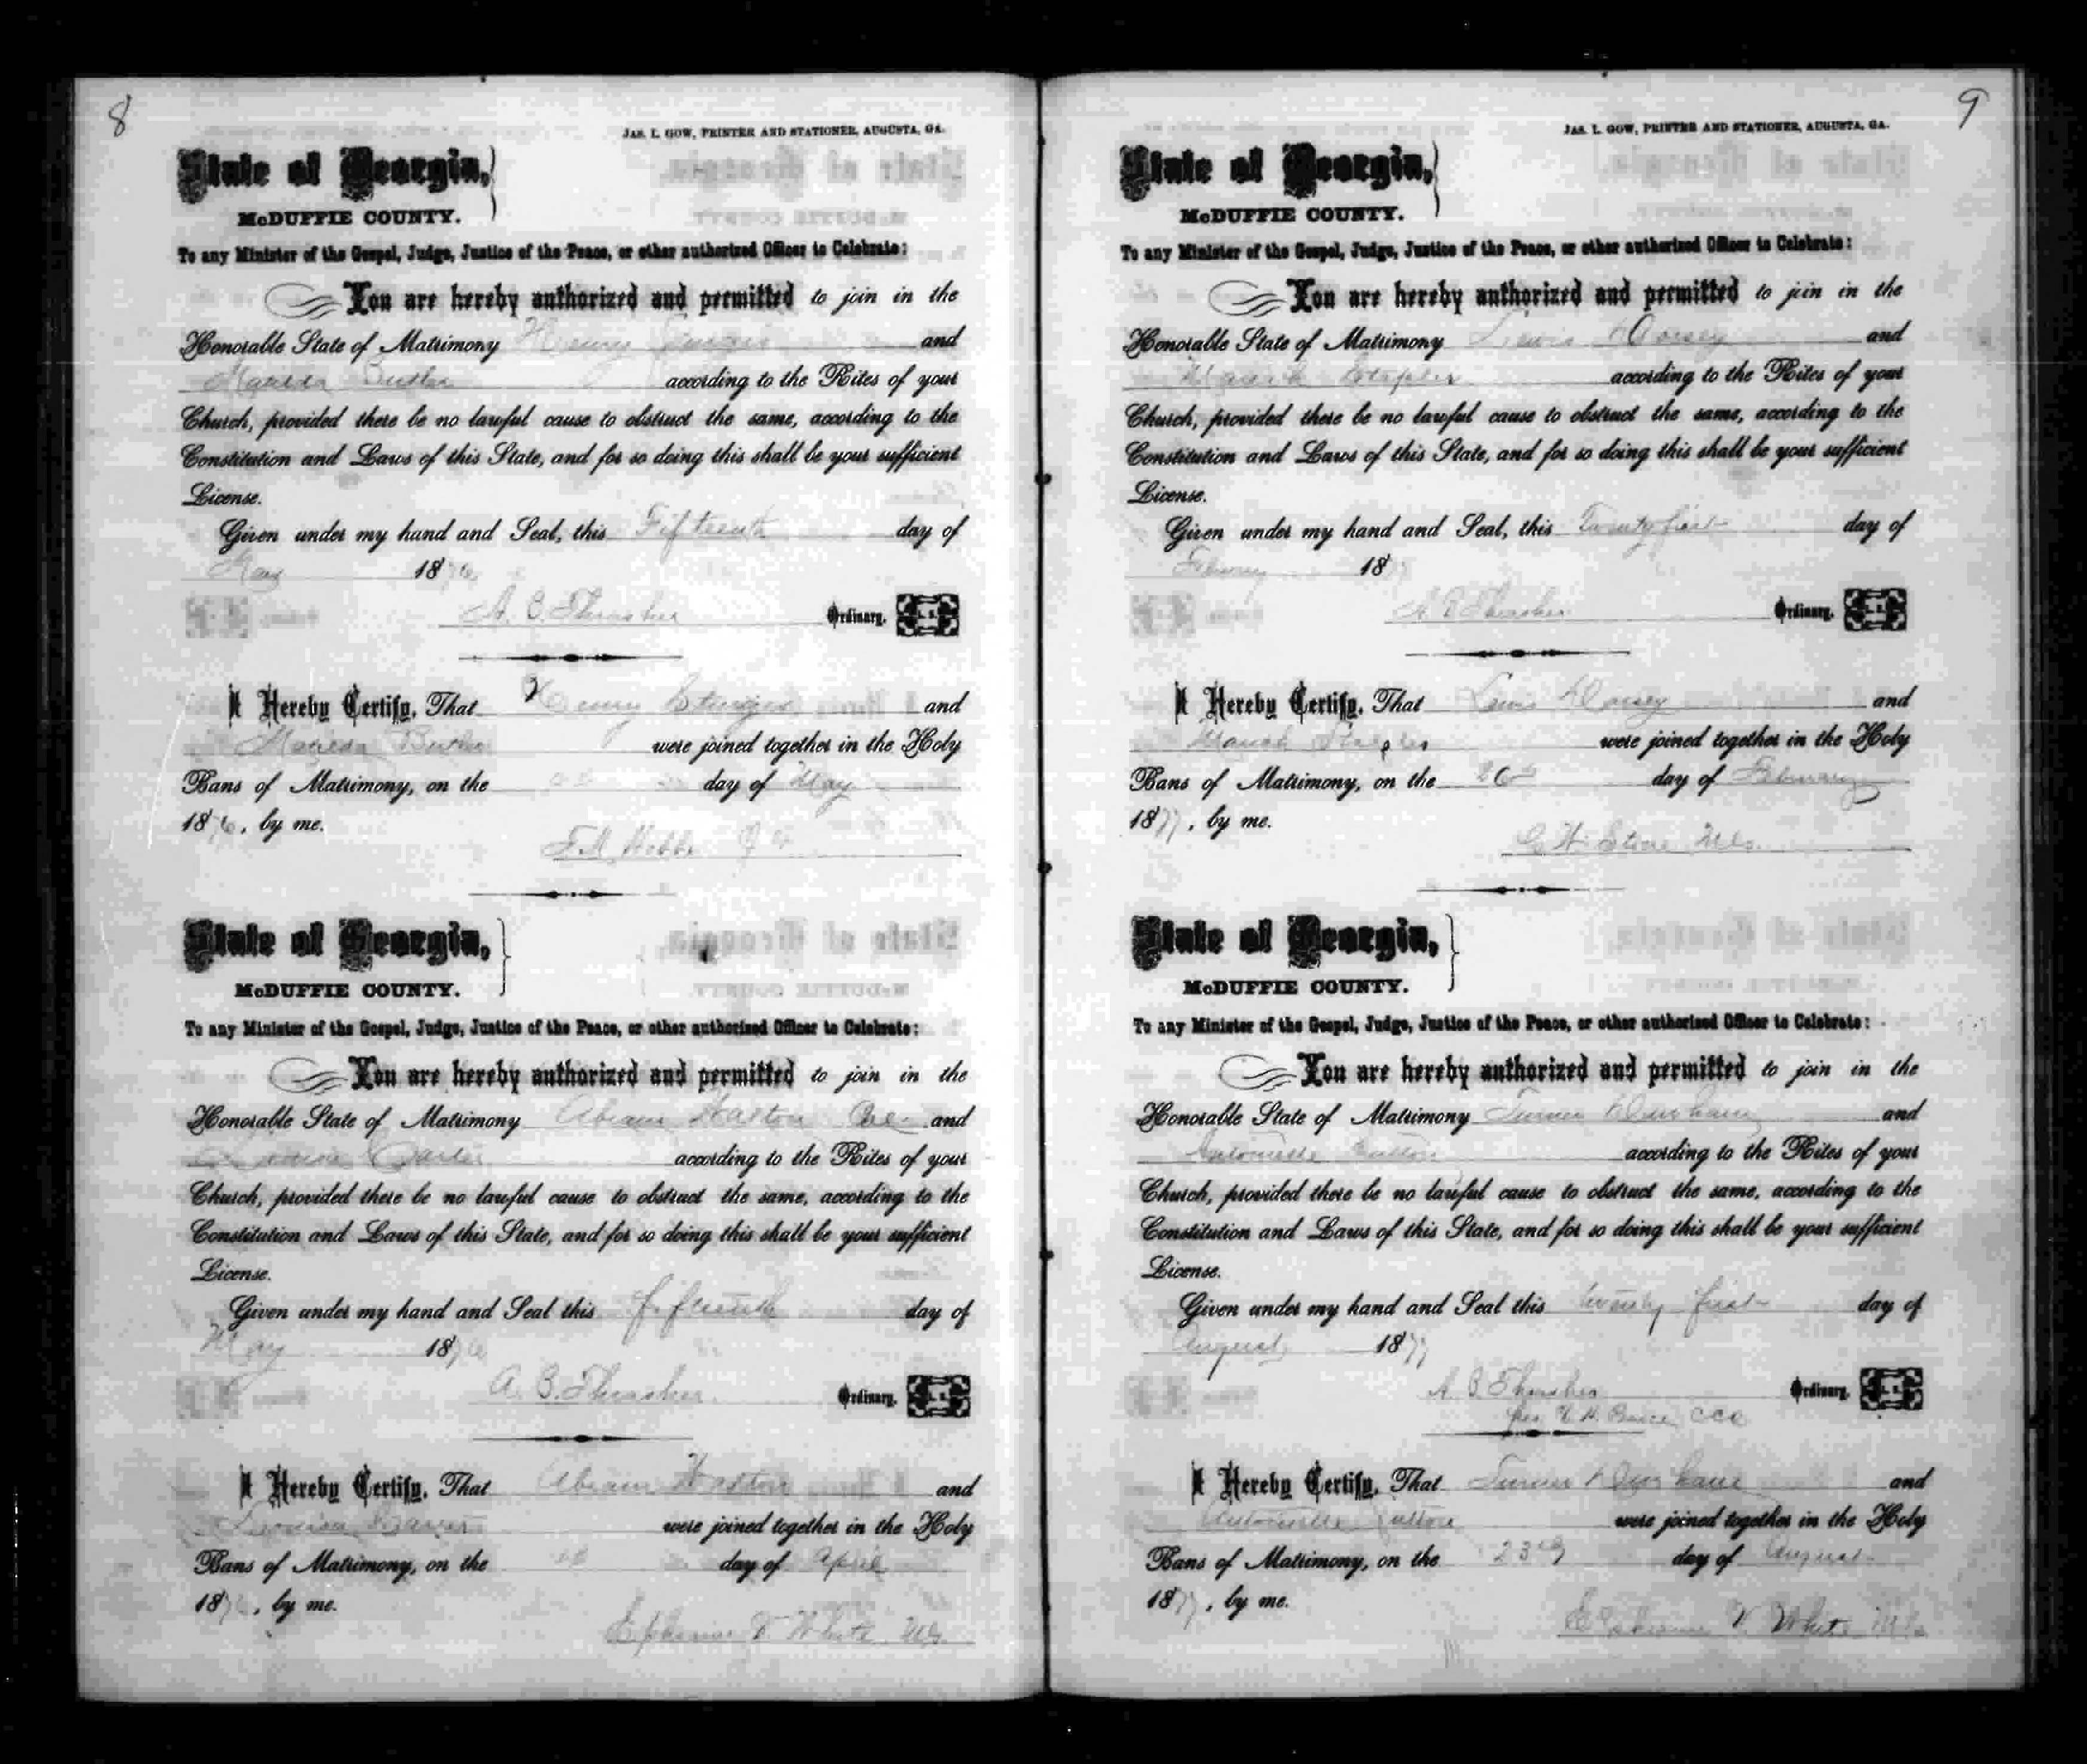 8
JAS. L. GOW, PRINTER AND STATIONER, AUGUSTA, GA.
State of Georgia,
McDUFFIE COUNTY.
To any Minister of the Gospel, Judge, Justice of the Peace, or other authorized Officer to Celebrate:
You are hereby authorized and permitted to join in the
Honorable State of Matrimony Henry and
Butler according to the Rites of your
Church, provided there be no lawful cause to obstruct the same, according to the
Constitution and Laws of this State, and for so doing this shall be your sufficient
License.
Given under my hand and Seal, this Fifteenth day of
May 1876
A. B. Thrasher Ordinary. L.S.
I Hereby Certify, That Henry Sturgis and
Butler were joined together in the Holy
Bans of Matrimony, on the day of May
1876, by me.
State of Georgia,
McDUFFIE COUNTY.
To any Minister of the Gospel, Judge, Justice of the Peace, or other authorized Officer to Celebrate:
You are hereby authorized and permitted to join in the
Honorable State of Matrimony Abram and
according to the Rites of your
Church, provided there be no lawful cause to obstruct the same, according to the
Constitution and Laws of this State, and for so doing this shall be your sufficient
License.
Given under my hand and Seal this fifteenth day of
May 1876
A. B. Thrasher Ordinary. L.S.
I Hereby Certify, That Abram and
were joined together in the Holy
Bans of Matrimony, on the day of April
1876, by me.
White
9
JAS. L. GOW, PRINTER AND STATIONER, AUGUSTA, GA.
State of Georgia,
McDUFFIE COUNTY.
To any Minister of the Gospel, Judge, Justice of the Peace, or other authorized Officer to Celebrate:
You are hereby authorized and permitted to join in the
Honorable State of Matrimony Lewis Dorsey and
according to the Rites of your
Church, provided there be no lawful cause to obstruct the same, according to the
Constitution and Laws of this State, and for so doing this shall be your sufficient
License.
Given under my hand and Seal, this Twenty first day of
18
A B Thrasher Ordinary. L.S.
I Hereby Certify, That Lewis Dorsey and
were joined together in the Holy
Bans of Matrimony, on the day of February
1877, by me.
State of Georgia,
McDUFFIE COUNTY.
To any Minister of the Gospel, Judge, Justice of the Peace, or other authorized Officer to Celebrate:
You are hereby authorized and permitted to join in the
Honorable State of Matrimony Turner Durham and
Antoinette according to the Rites of your
Church, provided there be no lawful cause to obstruct the same, according to the
Constitution and Laws of this State, and for so doing this shall be your sufficient
License.
Given under my hand and Seal this twenty first day of
August 1877
A. B. Thrasher Ordinary. L.S.
I Hereby Certify, That Turner Durham and
Antoinette were joined together in the Holy
Bans of Matrimony, on the 23rd day of August
1877, by me.
V. White